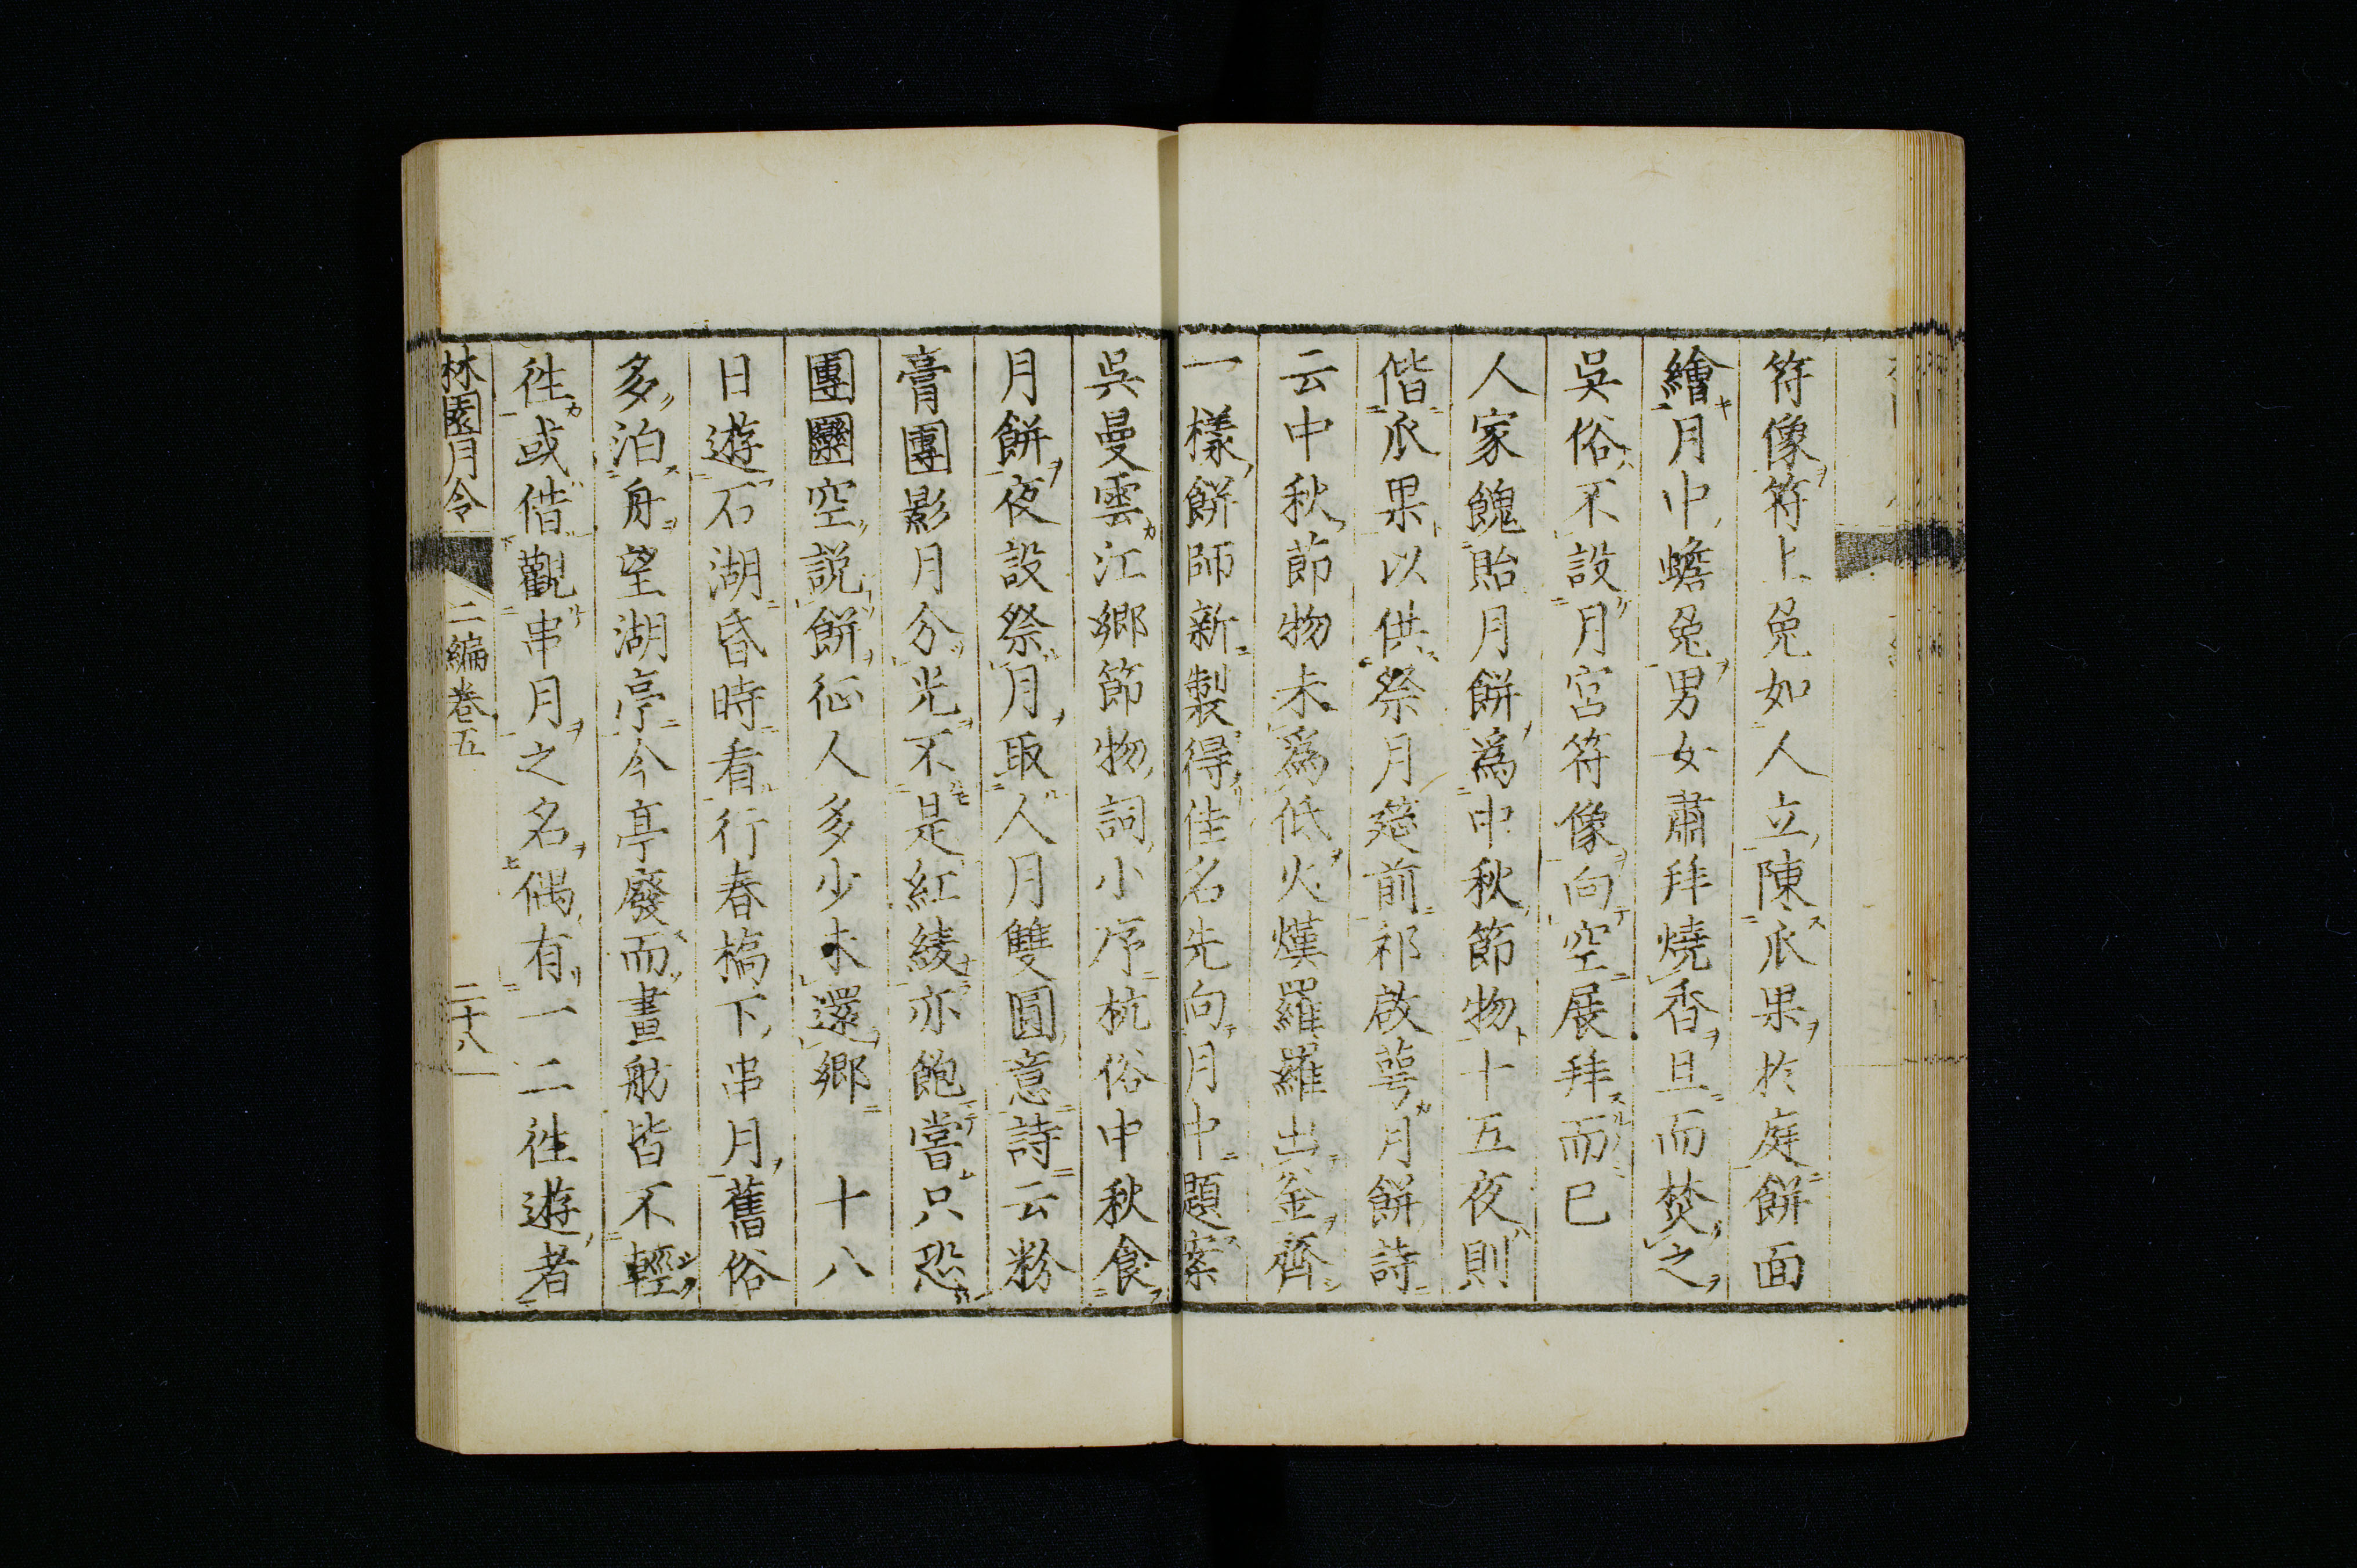 符像符上兔如人立陳瓜果於庭餅面
繪月中蟾兔男女肅拜燒香旦而焚之
吳俗不設月宮符像向空展拜而已
人家餽貽月餅爲中秋節物十五夜則
偕瓜果以供祭月筵前祁啟萼月餅詩
云中秋節物未爲低火熯羅羅出釜齊
一樣餅師新製得佳名先向月中題案
吳曼雲江鄉節物詞小序杭俗中秋食
月餅夜設祭月取人月雙圓意詩云粉
膏團影月分光不是紅綾亦飽嘗只恐
團圞空説餅征人多少未還鄉　十八
日遊石湖昏時看行春橋下串月舊俗
多泊舟望湖亭今亭廢而畫舫皆不輕
徃或借觀串月之名偶有一二徃遊者
林園月令　二編巻五　二十八